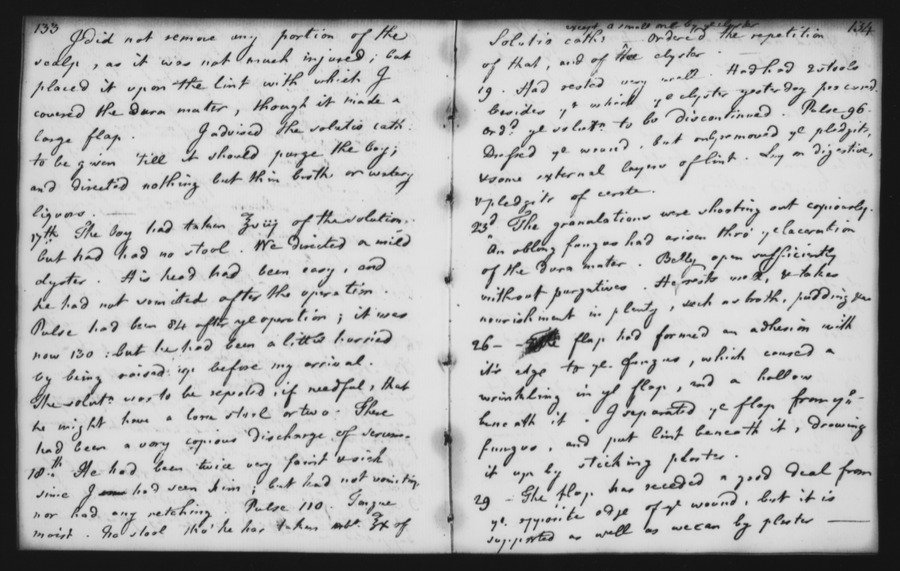 133
I did not remove any portion of the
scalp, as it was not much injured; but
placed it upon the lint with which I
covered the dura mater, though it made a
large flap. I advised the solutio cath.
to be given 'till it should purge the boy;
and directed nothing but thin broth or watery
liquors. —
17th The boy had taken ℥viij of the solution.
but had had no stool. We directed a mild
clyster. His head had been easy, and
he had not vomited after the operation.
Pulse had been 84 after ye operation; it was
now 130: but he had been a little hurried
by being raised up before my arrival.
The solutn was to be repeated, if needful, that
he might have a loose stool or two. There
had been a very copious discharge of serum.
18th He had been twice very faint & sick
since I had seen him; but had not vomiting
nor had any retching. Pulse 110. Tongue
moist. No stool tho' he has taken ℥x of
134
except a small one by ye clyster
Solutio cath: — Ordered the repetition
of that, and of the clyster.
19. Had rested very well. Had had 2 stools
besides ye which ye clyster yesterday procured.
Ordd ye solutn to be discontinued. Pulse 96.
Dressed ye wound, but only removed ye pledgits,
& some external layers of lint. Lay on digestive,
& pledgits of cerate.
23d The granulations were shooting out copiously.
An oblong fungus had arisen thro' ye laceration
of the dura mater. Belly open sufficiently
without purgatives. He rests well, & takes
nourishment in plenty, such as broth, pudding &c
26 — flap had formed an adhesion with
its edge to ye fungus, which caused a
wrinkling in ye flap, and a hollow
beneath it. I separated ye flap from ye
fungus, and put lint beneath it, drawing
it up by sticking plaster.
29 — The flap has receded a good deal from
ye opposite edge of ye wound, but it is
supported as well as we can by plaster —